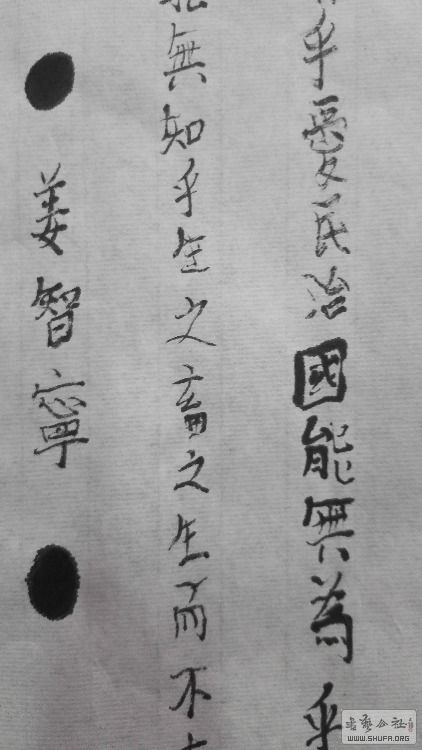 乎愛民治國能無為乎
無知乎生之畜之生而不
姜智寧
書藝公社
WWW.SHUFA.ORG